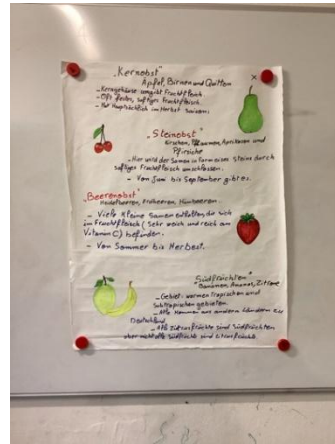 "Kernobst"
Äpfel, Birnen und Quitten
- Kerngehäuse umgibt Fruchtfleisch
- Oft festes, saftiges Fruchtfleisch.
- Hat Hauptsächlich im Herbst Saison.
"Steinobst"
Kirschen, Pflaumen, Aprikosen und
Pfirsiche
- Hier wird der Samen in form eines Steins durch
saftiges Fruchtfleisch umschlossen.
- Von Juni bis September gibt es.
"Beerenobst"
Heidelbeeren, Erdbeeren, Himbeeren.
- Viele kleine Samen enthalten die sich
im Fruchtfleisch (Sehr weich und reich am
Vitamin C) befinden.
- Von Sommer bis Herbest.
"Südfrüchten"
Bananen, Ananas, Zitrone
- Gebiet: warmen tropischen und
subtropischen gebieten.
- Alle kommen aus andern Ländern zu
Deutschland
- Alle Zitrusfrüchte sind Südfrüchten
aber nicht alle südfrüchte sind zitrusfrüchte.